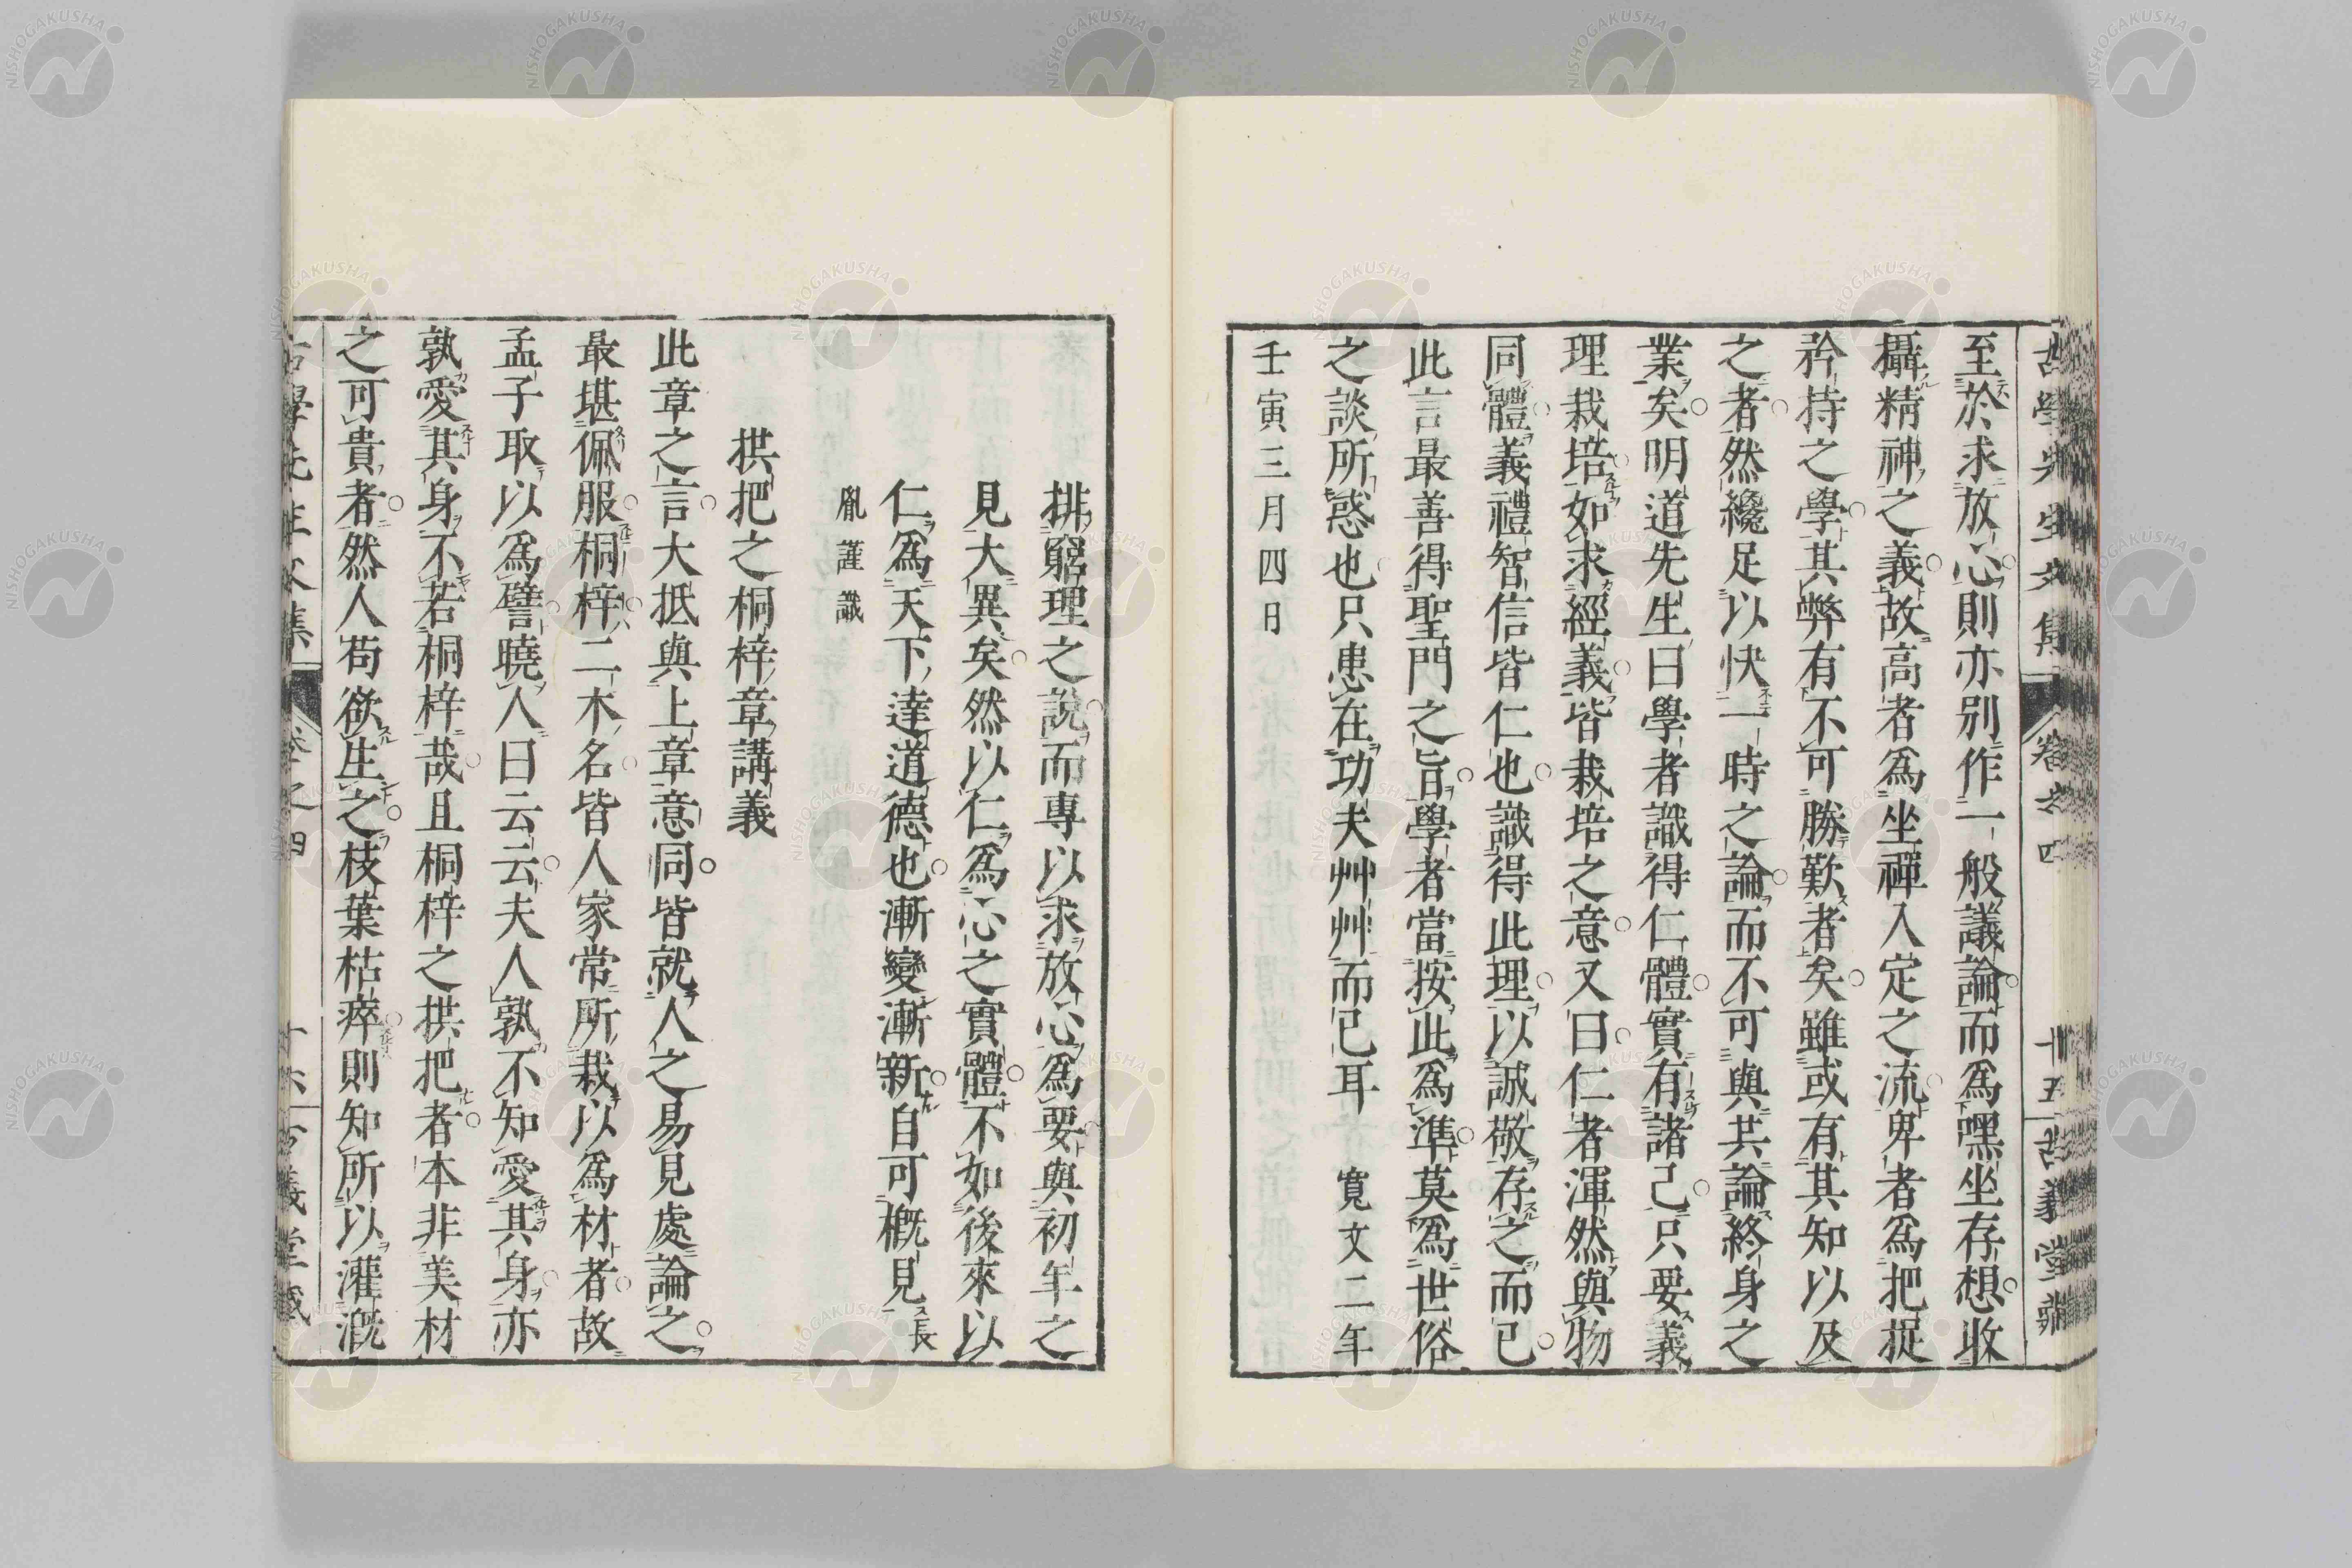 古學先生文集 卷之四 十五 古義堂藏
至於求放心則亦別作一般議論而爲嘿坐存想收
攝精神之義故高者爲坐禪入定之流卑者爲把捉
矜持之學其弊有不可勝歎者矣雖或有其知以及
之者然纔足以快一時之論而不可與共論終身之
業矣明道先生曰學者識得仁體實有諸己只要義
理栽培如求經義皆栽培之意又曰仁者渾然與物
同體義禮智信皆仁也識得此理以誠敬存之而已
此言最善得聖門之旨學者當按此爲準莫爲世俗
之談所惑也只患在功夫艸艸而已耳 寬文二年
壬寅三月四日
排窮理之說而專以求放心爲要與初年之
見大異矣然以仁爲心之實體不如後來以
仁爲天下達道德也漸變漸新自可概見 長
胤謹識
拱把之桐梓章講義
此章之言大抵與上章意同皆就人之易見處論之
最堪佩服桐梓二木名皆人家常所栽以爲材者故
孟子取以爲譬曉人曰云云夫人孰不知愛其身亦
孰愛其身不若桐梓哉且桐梓之拱把者本非美材
之可貴者然人苟欲生之枝葉枯瘁則知所以灌漑
古學先生文集 卷之四 十六 古義堂藏
NISHOGAKUSHA